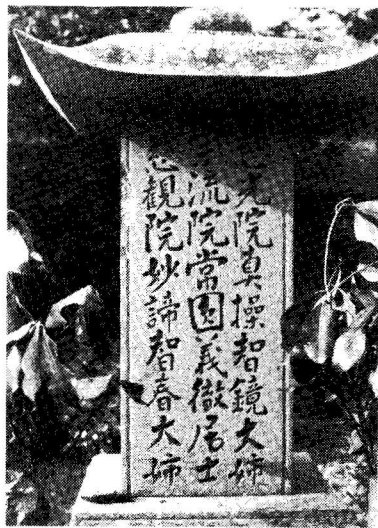 光院真操智鏡大姉
流院常圓義徹居士
観院妙諦智春大姉